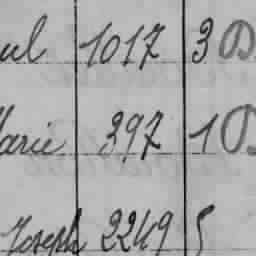 ul 1017 3 D
Marie 397 1 D
Joseph 2249 5